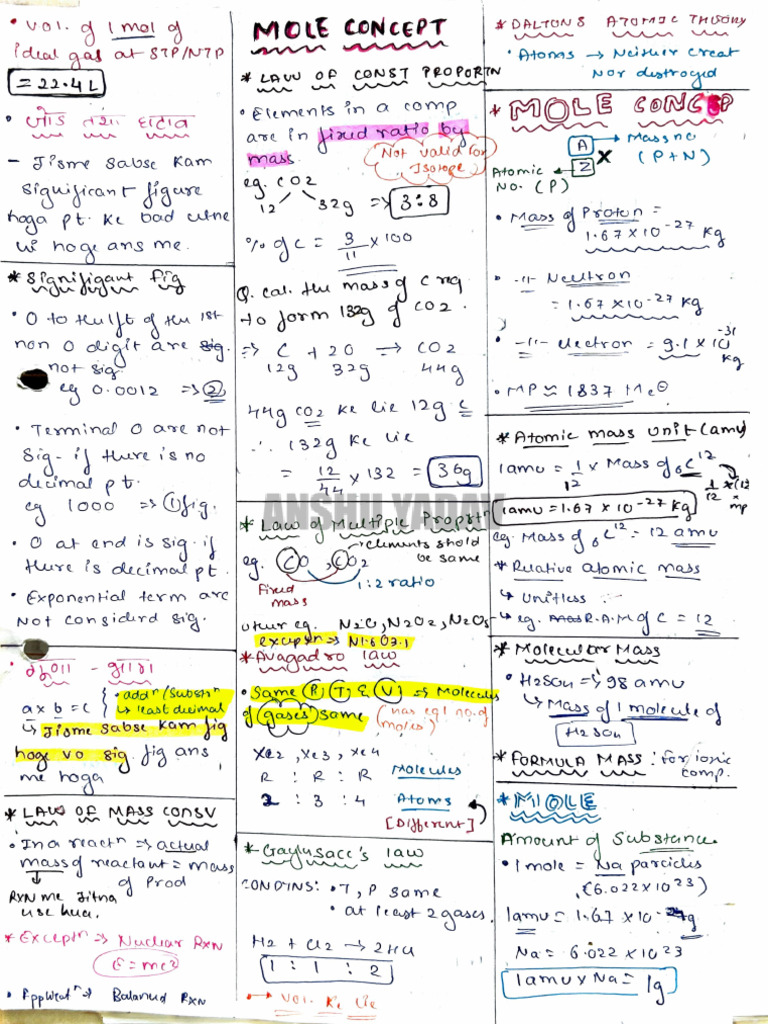 • Vol. of 1 mol of
ideal gas at STP/NTP
= 22.4 L
• जोड़ तथा घटाव
- Jisme sabse kam
significant figure
hoga pt. ke bad utne
hi hoge ans me.
* Signifigant fig
• 0 to the lft of the 1st
non 0 digit are sig.
not sig
eg 0.0012 => 2
• Terminal 0 are not
sig- if there is no
decimal pt.
eg 1000 => 1 fig.
• 0 at end is sig. if
there is decimal pt.
• Exponential term are
not considerd sig.
• गुणा - भाग
a x b = c { • addn/substn
↳ least decimal
↳ Jisme sabse kam fig
hoge vo sig. fig ans
me hoga
* LAW OF MASS CONSV
• In a reactn => actual
mass of reactant = mass
of Prod
RXN me Jitna
use hua.
* Exceptn => Nuclear RXN
E = mc2
Balanced RXN
MOLE CONCEPT
* LAW OF CONST PROPORTN
• Elements in a comp
are in fixed ratio by
mass
Not valid for
Isotope
eg. CO2
12 32g => 3:8
% of C = 3/11 x 100
Q. cal. the mass of C req
to form 132g of CO2.
=> C + 2O => CO2
12g 32g 44g
44g CO2 ke lie 12g C
∴ 132g ke lie
= 12/44 x 132 = 36g
ANSHUL YADAV
* Law of Multiple Proprtn
eg. CO, CO2
→ elements should
be same
Fixed
mass
1:2 ratio
other eg. N2O, N2O2, N2O5
exceptn =>
* Avagadro law
• Same P, T & V => Molecules
of gases same (has eql no. of
moles)
Xe2, Xe3, Xe4
R : R : R Molecules
2 : 3 : 4 Atoms
[Different]
* Gaylusacc's law
CONDTNS: • T, P same
• at least 2 gases.
H2 + Cl2 → 2HCl
1 : 1 : 2
→ Vol. ke lie
* DALTONS ATOMIC THEORY
• Atoms → Neither creat
Nor destroyed
* MOLE CONCEP
A → Mass no
Z X (P+N)
Atomic
No. (P)
• Mass of Proton =
1.67 x 10-27 kg
• -11- Neutron
= 1.67 x 10-27 kg
• -11- electron = 9.1 x 10-31
kg
• MP ≈ 1837 Me⊖
* Atomic mass unit (amu)
1 amu = 1/12 x Mass of 6C12
1/12 x (12 x mp
1 amu = 1.67 x 10-27 kg
eg. Mass of 6C12 = 12 amu
* Relative atomic mass
↳ Unitless
↳ eg. R.A.M of C = 12
* Molecular Mass
• H2SO4 => 98 amu
↳ Mass of 1 molecule of
H2SO4
* FORMULA MASS : for ionic
comp.
* MOLE
Amount of Substance
• 1 mole = Na parcicles
(6.022 x 10 23)
1 amu = 1.67 x 10-24 g
Na = 6.022 x 1023
1 amu x Na = 1g